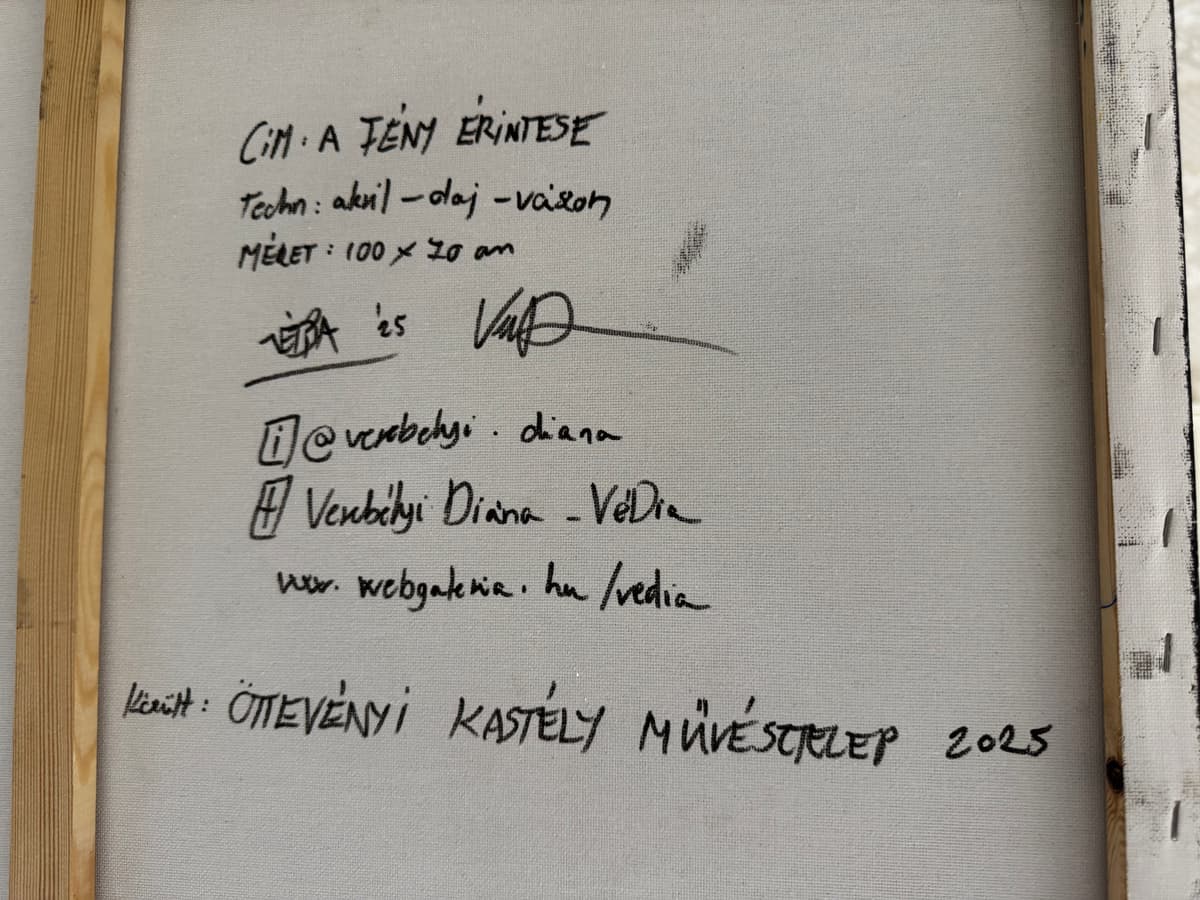 CíM: A FÉNY ÉRiNTESE
Techn: akril - olaj - vászon
MÉRET: 100 x 70 cm
'25
@verebelyi.diana
Verebélyi Diána - VéDia
www.webgaleria.hu/vedia
Készült: ÖTTEVÉNYi KASTÉLY MŰVÉSZTELEP 2025